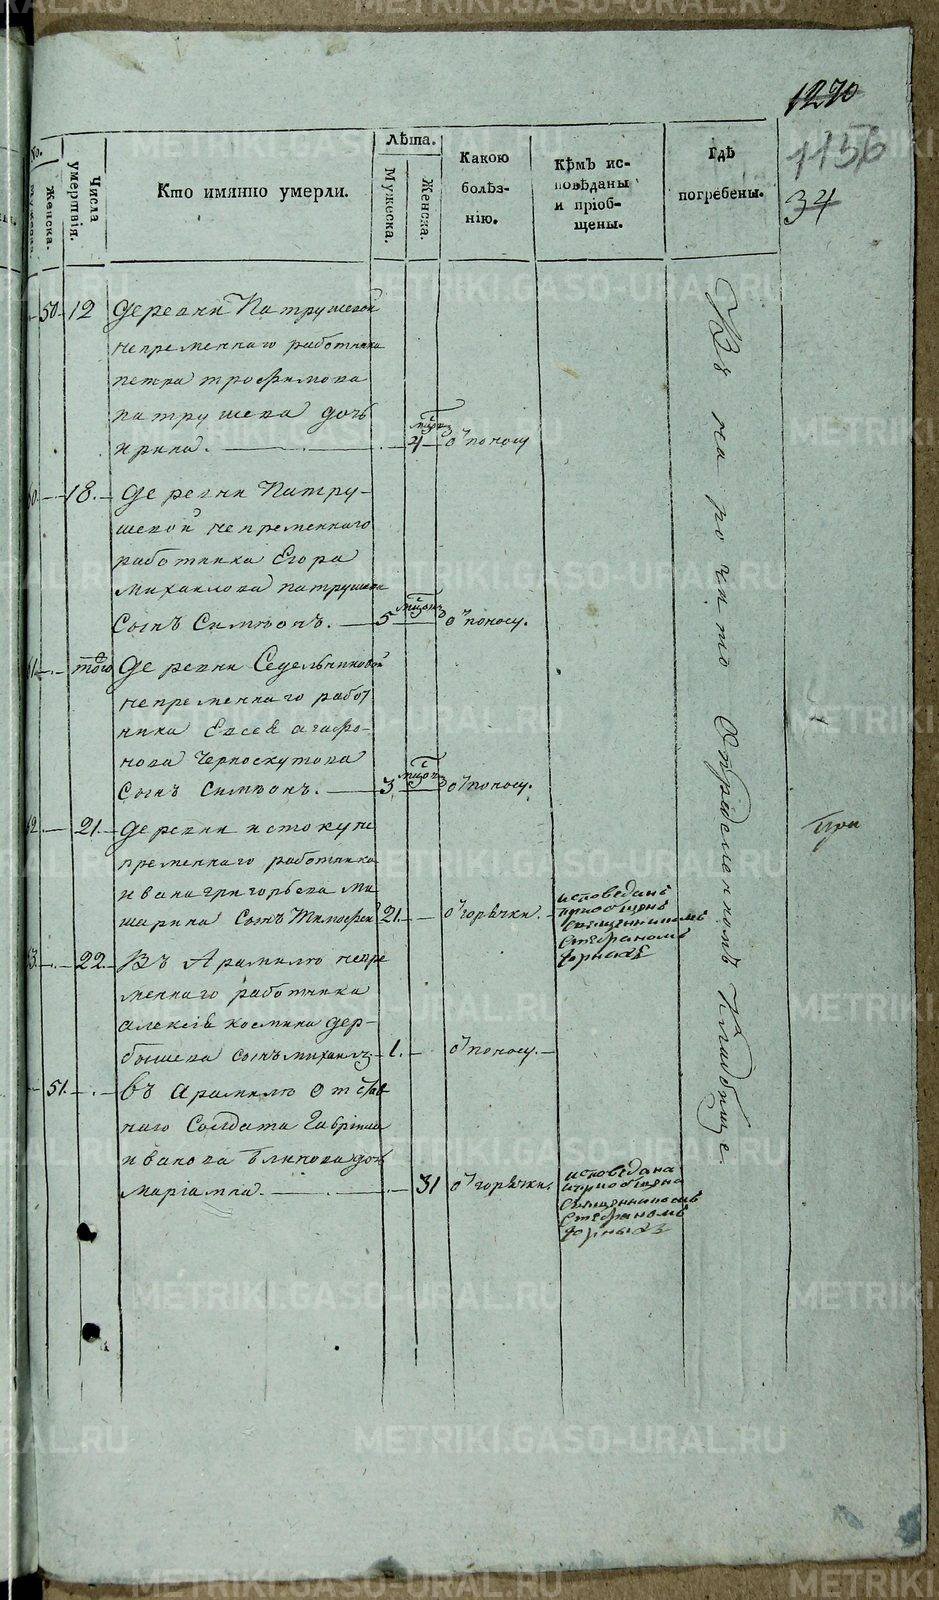 1270
1156
34
No.
Мужеска.
Женска.
Числа умертвія.
Кто имянно умерли.
Лѣта.
Мужеска.
Женска.
Какою болѣз-
нію.
Кѣмъ ис-
повѣданы
и пріоб-
щены.
Гдѣ
погребены.
50. 12 деревни Патрушевой
непременнаго работника
петра трофимова
патрушева дочь
ирина. 4 о᾽ поносу
18. деревни Патру-
шевой непременнаго
работника Егора
михаилова патрушева
Сынъ Симеонъ. 5 о᾽ поносу.
того деревни Седельниковой
непременнаго работ
ника Евсея агафо-
нова Черноскутова
Сынъ Симеонъ. 3 о᾽ поносу.
21. деревни истоку не
пременнаго работника
ивана григорьева ми
шарина сынъ Тимофей 21 о᾽ горячки.
исповеданъ
приобщенъ
священникомъ
Стефаномъ
22. Въ Арамилю непре
меннаго работника
алексѣя космина дер-
бышева сынъ михаилъ 1. о᾽ поносу.
51. въ Арамилю отстав
наго Солдата Гавріила
иванова блинова дочь
маріамна. 31 о᾽ горячки.
исповедана
и приобщена
священникомъ
Стефаномъ
на
Кладбище
при